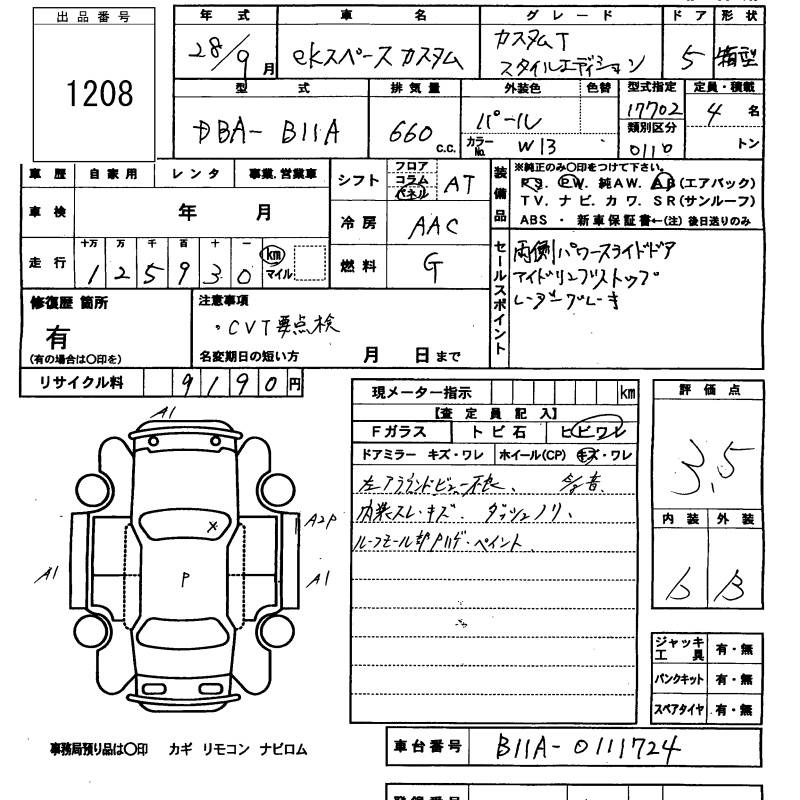 出品番号
1208
年式 車名 グレード ドア 形状
28/9月 eKスペース カスタム カスタムT スタイルエディション 5 箱型
型式 排気量 外装色 色替 型式指定 定員・積載
DBA-B11A 660 C.C. パール 17702 4名
カラーNo. W13 類別区分 0110 トン
車歴 自家用 レンタ 事業.営業車
車検 年 月
走行 十万 万 千 百 十 一
125930 km マイル
シフト フロア コラム パネル AT
冷房 AAC
燃料 G
装備品
※純正のみ〇印をつけて下さい。
PS. PW. 純AW. AB(エアバック)
TV. ナビ. カワ. SR(サンルーフ)
ABS ・ 新車保証書←(注) 後日送りのみ
セールスポイント
両側パワースライドドア
アイドリングストップ
レーダーブレーキ
修復歴 箇所
有
(有の場合は〇印を)
注意事項
・CVT要点検
名変期日の短い方 月 日まで
リサイクル料 9190円
現メーター指示 km
【査定員記入】
Fガラス トビ石 ヒビワレ
ドアミラー キズ・ワレ ホイール(CP) キズ・ワレ
左アラウンドビュー不良、 異音
内装スレ・キズ. ダッシュノリ.
ルーフモール部ハゲ・ペイント
評価点
3.5
内装 外装
b B
ジャッキ工具 有・無
パンクキット 有・無
スペアタイヤ 有・無
A1
X
A2P
P
A1
A1
事務局預り品は〇印 カギ リモコン ナビロム
車台番号 B11A-0111724